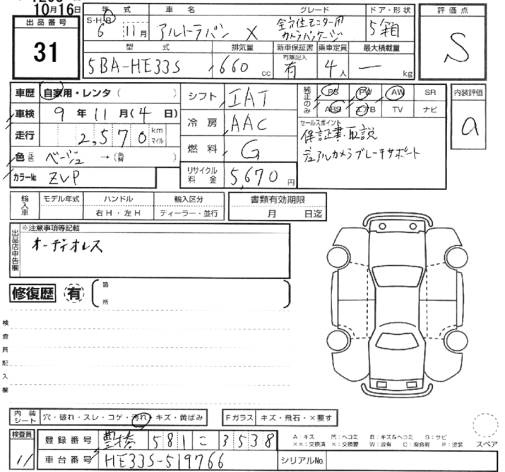 10月16日
出品番号
31
年式 車名 グレード ドア・形状 評価点
S・H・R 6 11月 アルトラパン X 全方位モニター用カメラパッケージ 5 箱 S
型式 排気量 新車保証書 乗車定員 最大積載量
5BA-HE33S 660 cc 有 4人 — kg
車歴 自家用・レンタ シフト IAT PS PW AW SR 内装評価
車検 9年11月(4日) 冷房 AAC ABS TV ナビ a
走行 2,570 km マイル 燃料 G セールスポイント
保証書 取説
デュアルカメラブレーキサポート
色 ベージュ → リサイクル料金 5,670円
カラーNo ZVP
輸入車 モデル年式 ハンドル 輸入区分 書類有効期限
右H・左H ディーラー・並行 月 日迄
出品店申告欄 ※注意事項等記載
オーディオレス
修復歴 有 箇所
検査員記入欄
内装シート 穴・破れ・スレ・コゲ・汚れ・キズ・黄ばみ Fガラス キズ・飛石・×要す
検査員 登録番号 豊橋 581 こ 3538
11 車台番号 HE33S-519766 シリアルNo
スペア